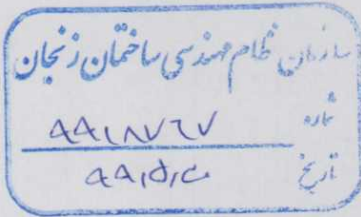 سازمان نظام مهندسی ساختمان زنجان
شماره ۹۹/۸۷۶۷
تاریخ ۹۹/۵/۲۰